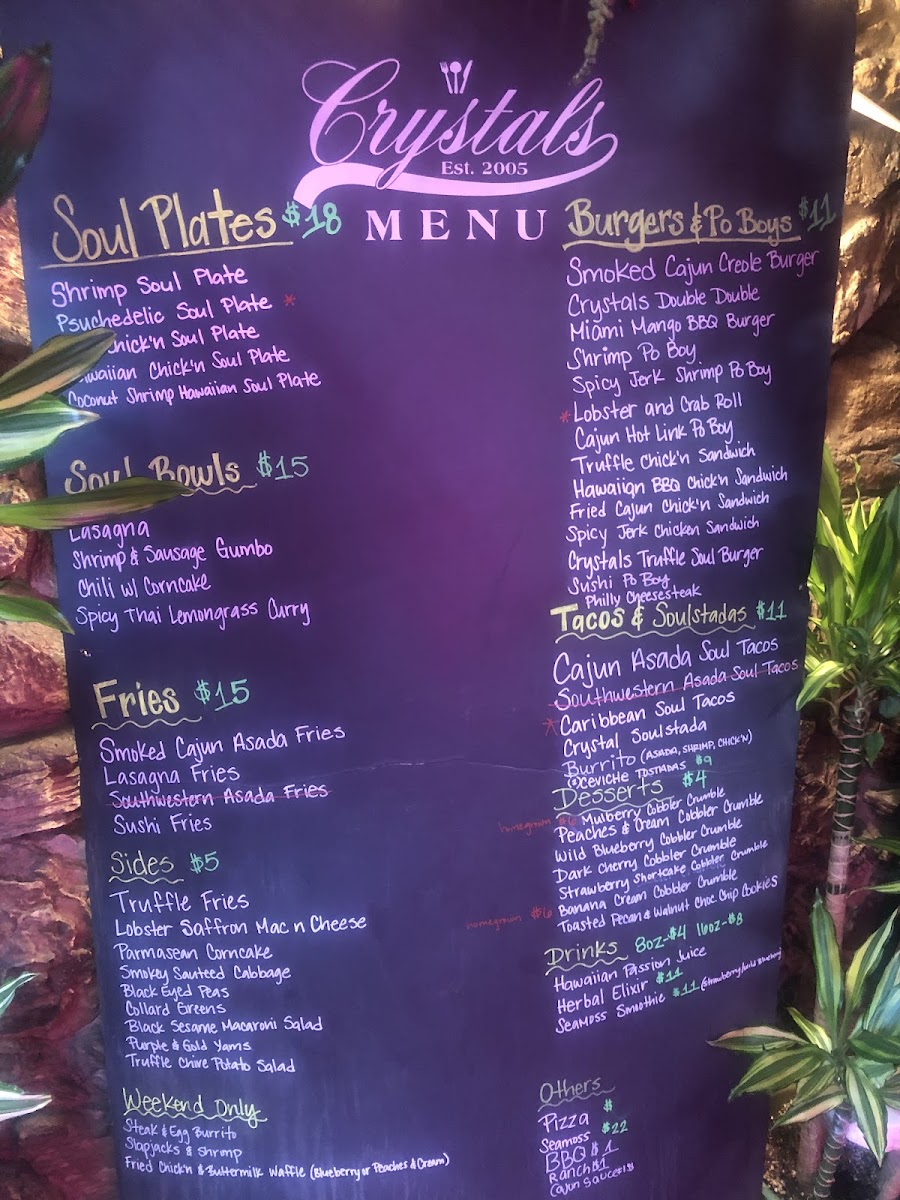 Crystals
Est. 2005
MENU
Soul Plates $18
Shrimp Soul Plate
Psychedelic Soul Plate *
Chick'n Soul Plate
Chick'n Soul Plate
Coconut Shrimp Hawaiian Soul Plate
Soul Bowls $15
Lasagna
Shrimp & Sausage Gumbo
Chili w/ Corncake
Spicy Thai Lemongrass Curry
Fries $15
Smoked Cajun Asada Fries
Lasagna Fries
Southwestern Asada Fries
Sushi Fries
Sides $5
Truffle Fries
Lobster Saffron Mac n Cheese
Parmasean Corncake
Smokey Sauteed Cabbage
Black Eyed Peas
Collard Greens
Black Sesame Macaroni Salad
Purple & Gold Yams
Truffle Chive Potato Salad
Weekend Only
Steak & Egg Burrito
Slapjacks & Shrimp
Fried Chick'n & Buttermilk Waffle (Blueberry or Peaches & Cream)
Burgers & Po Boys $11
Smoked Cajun Creole Burger
Crystals Double Double
Miami Mango BBQ Burger
Shrimp Po Boy
Spicy Jerk Shrimp Po Boy
* Lobster and Crab Roll
Cajun Hot Link Po Boy
Truffle Chick'n Sandwich
Hawaiian BBQ Chick'n Sandwich
Fried Cajun Chick'n Sandwich
Spicy Jerk Chicken Sandwich
Crystals Truffle Soul Burger
Sushi Po Boy
Philly Cheesesteak
Tacos & Soulstadas $11
Cajun Asada Soul Tacos
Southwestern Asada Soul Tacos
* Caribbean Soul Tacos
Crystal Soulstada
Burrito (Asada, Shrimp, Chick'n)
Ceviche Tostadas $9
Desserts $4
homegrown $6 Mulberry Cobbler Crumble
Peaches & Cream Cobbler Crumble
Wild Blueberry Cobbler Crumble
Dark Cherry Cobbler Crumble
Strawberry Shortcake Cobbler Crumble
homegrown $6 Banana Cream Cobbler Crumble
Toasted Pecan & Walnut Choc Chip Cookies
Drinks 8oz-$4 16oz-$8
Hawaiian Passion Juice
Herbal Elixir $11
Seamoss Smoothie $11 (Strawberry/Wild Blueberry)
Others
Pizza $
Seamoss $22
BBQ $1
Ranch $1
Cajun Sauce $1